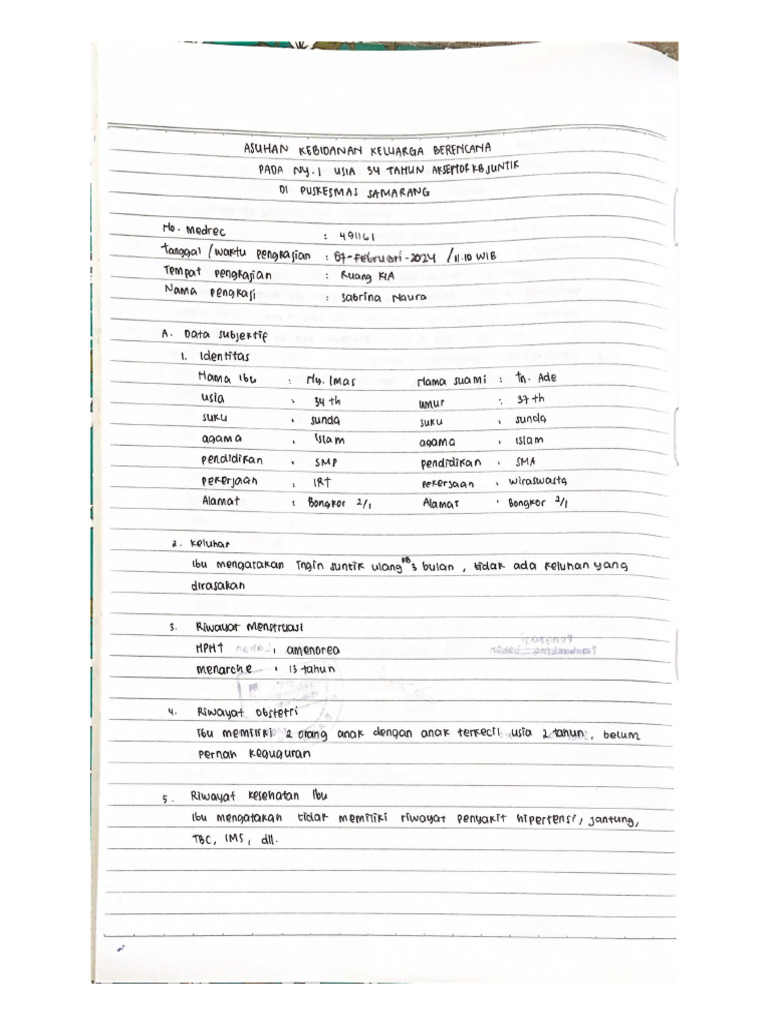 ASUHAN KEBIDANAN KELUARGA BERENCANA
PADA NY. I USIA 34 TAHUN AKSEPTOR KB SUNTIK
DI PUSKESMAS SAMARANG
No. Medrec : 491161
Tanggal / waktu pengkajian : 07-Februari-2024 / 11.10 WIB
Tempat pengkajian : Ruang KIA
Nama pengkaji : Sabrina Naura
A. Data subjektif
1. Identitas
Nama Ibu : Ny. Imas Nama suami : Tn. Ade
usia : 34 th umur : 37 th
suku : sunda suku : sunda
agama : Islam agama : Islam
pendidikan : SMP pendidikan : SMA
pekerjaan : IRT pekerjaan : wiraswasta
Alamat : Bongkor 2/1 Alamat : Bongkor 2/1
2. Keluhan
Ibu mengatakan ingin suntik ulang KB 3 bulan, tidak ada keluhan yang
dirasakan
3. Riwayat Menstruasi
HPHT : amenorea
menarche : 13 tahun
4. Riwayat obstetri
Ibu memiliki 2 orang anak dengan anak terkecil usia 2 tahun, belum
pernah keguguran
5. Riwayat kesehatan Ibu
Ibu mengatakan tidak memiliki riwayat penyakit hipertensi, jantung,
TBC, IMS, dll.